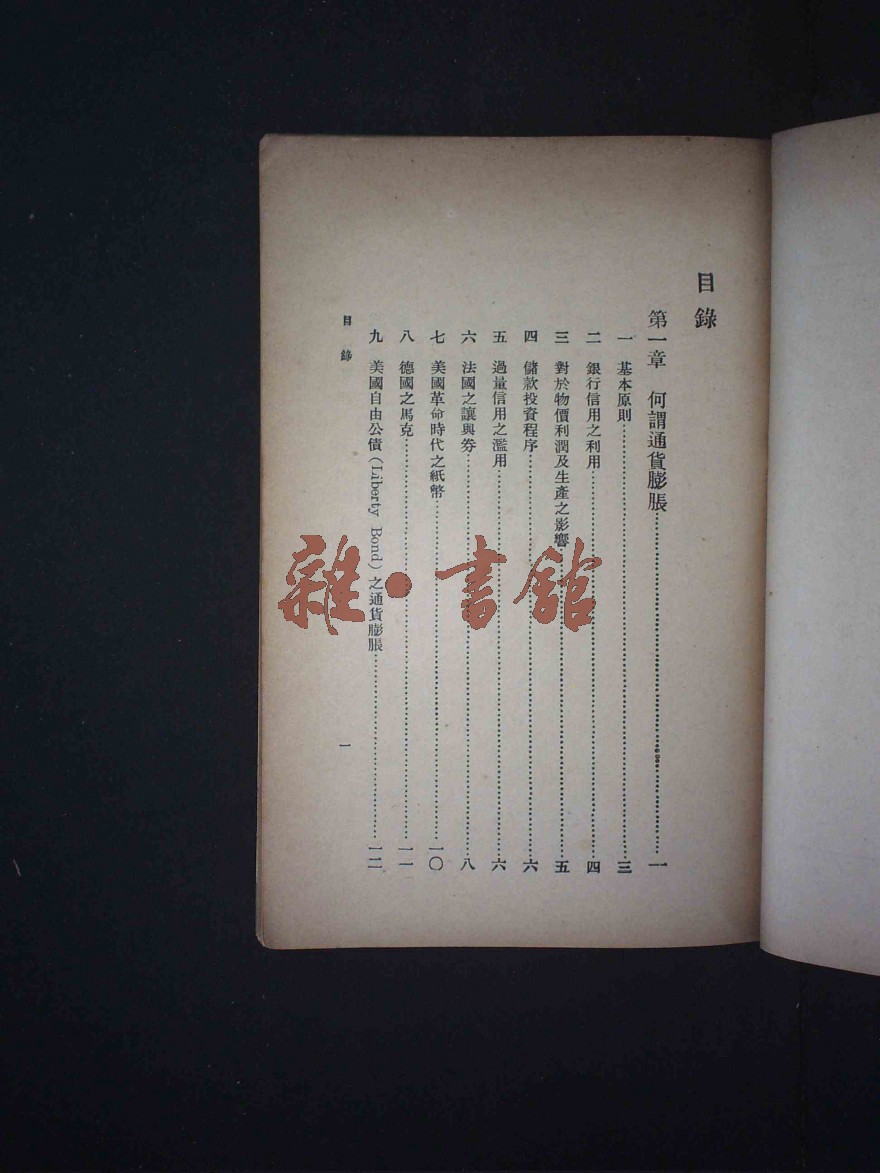 目錄
第一章　何謂通貨膨脹……一
一　基本原則……三
二　銀行信用之利用……四
三　對於物價利潤及生產之影響……五
四　儲款投資程序……六
五　過量信用之濫用……六
六　法國之讓與券……八
七　美國革命時代之紙幣……一〇
八　德國之馬克……一一
九　美國自由公債（Liberty Bond）之通貨膨脹……一二
目錄
一
雜·書館